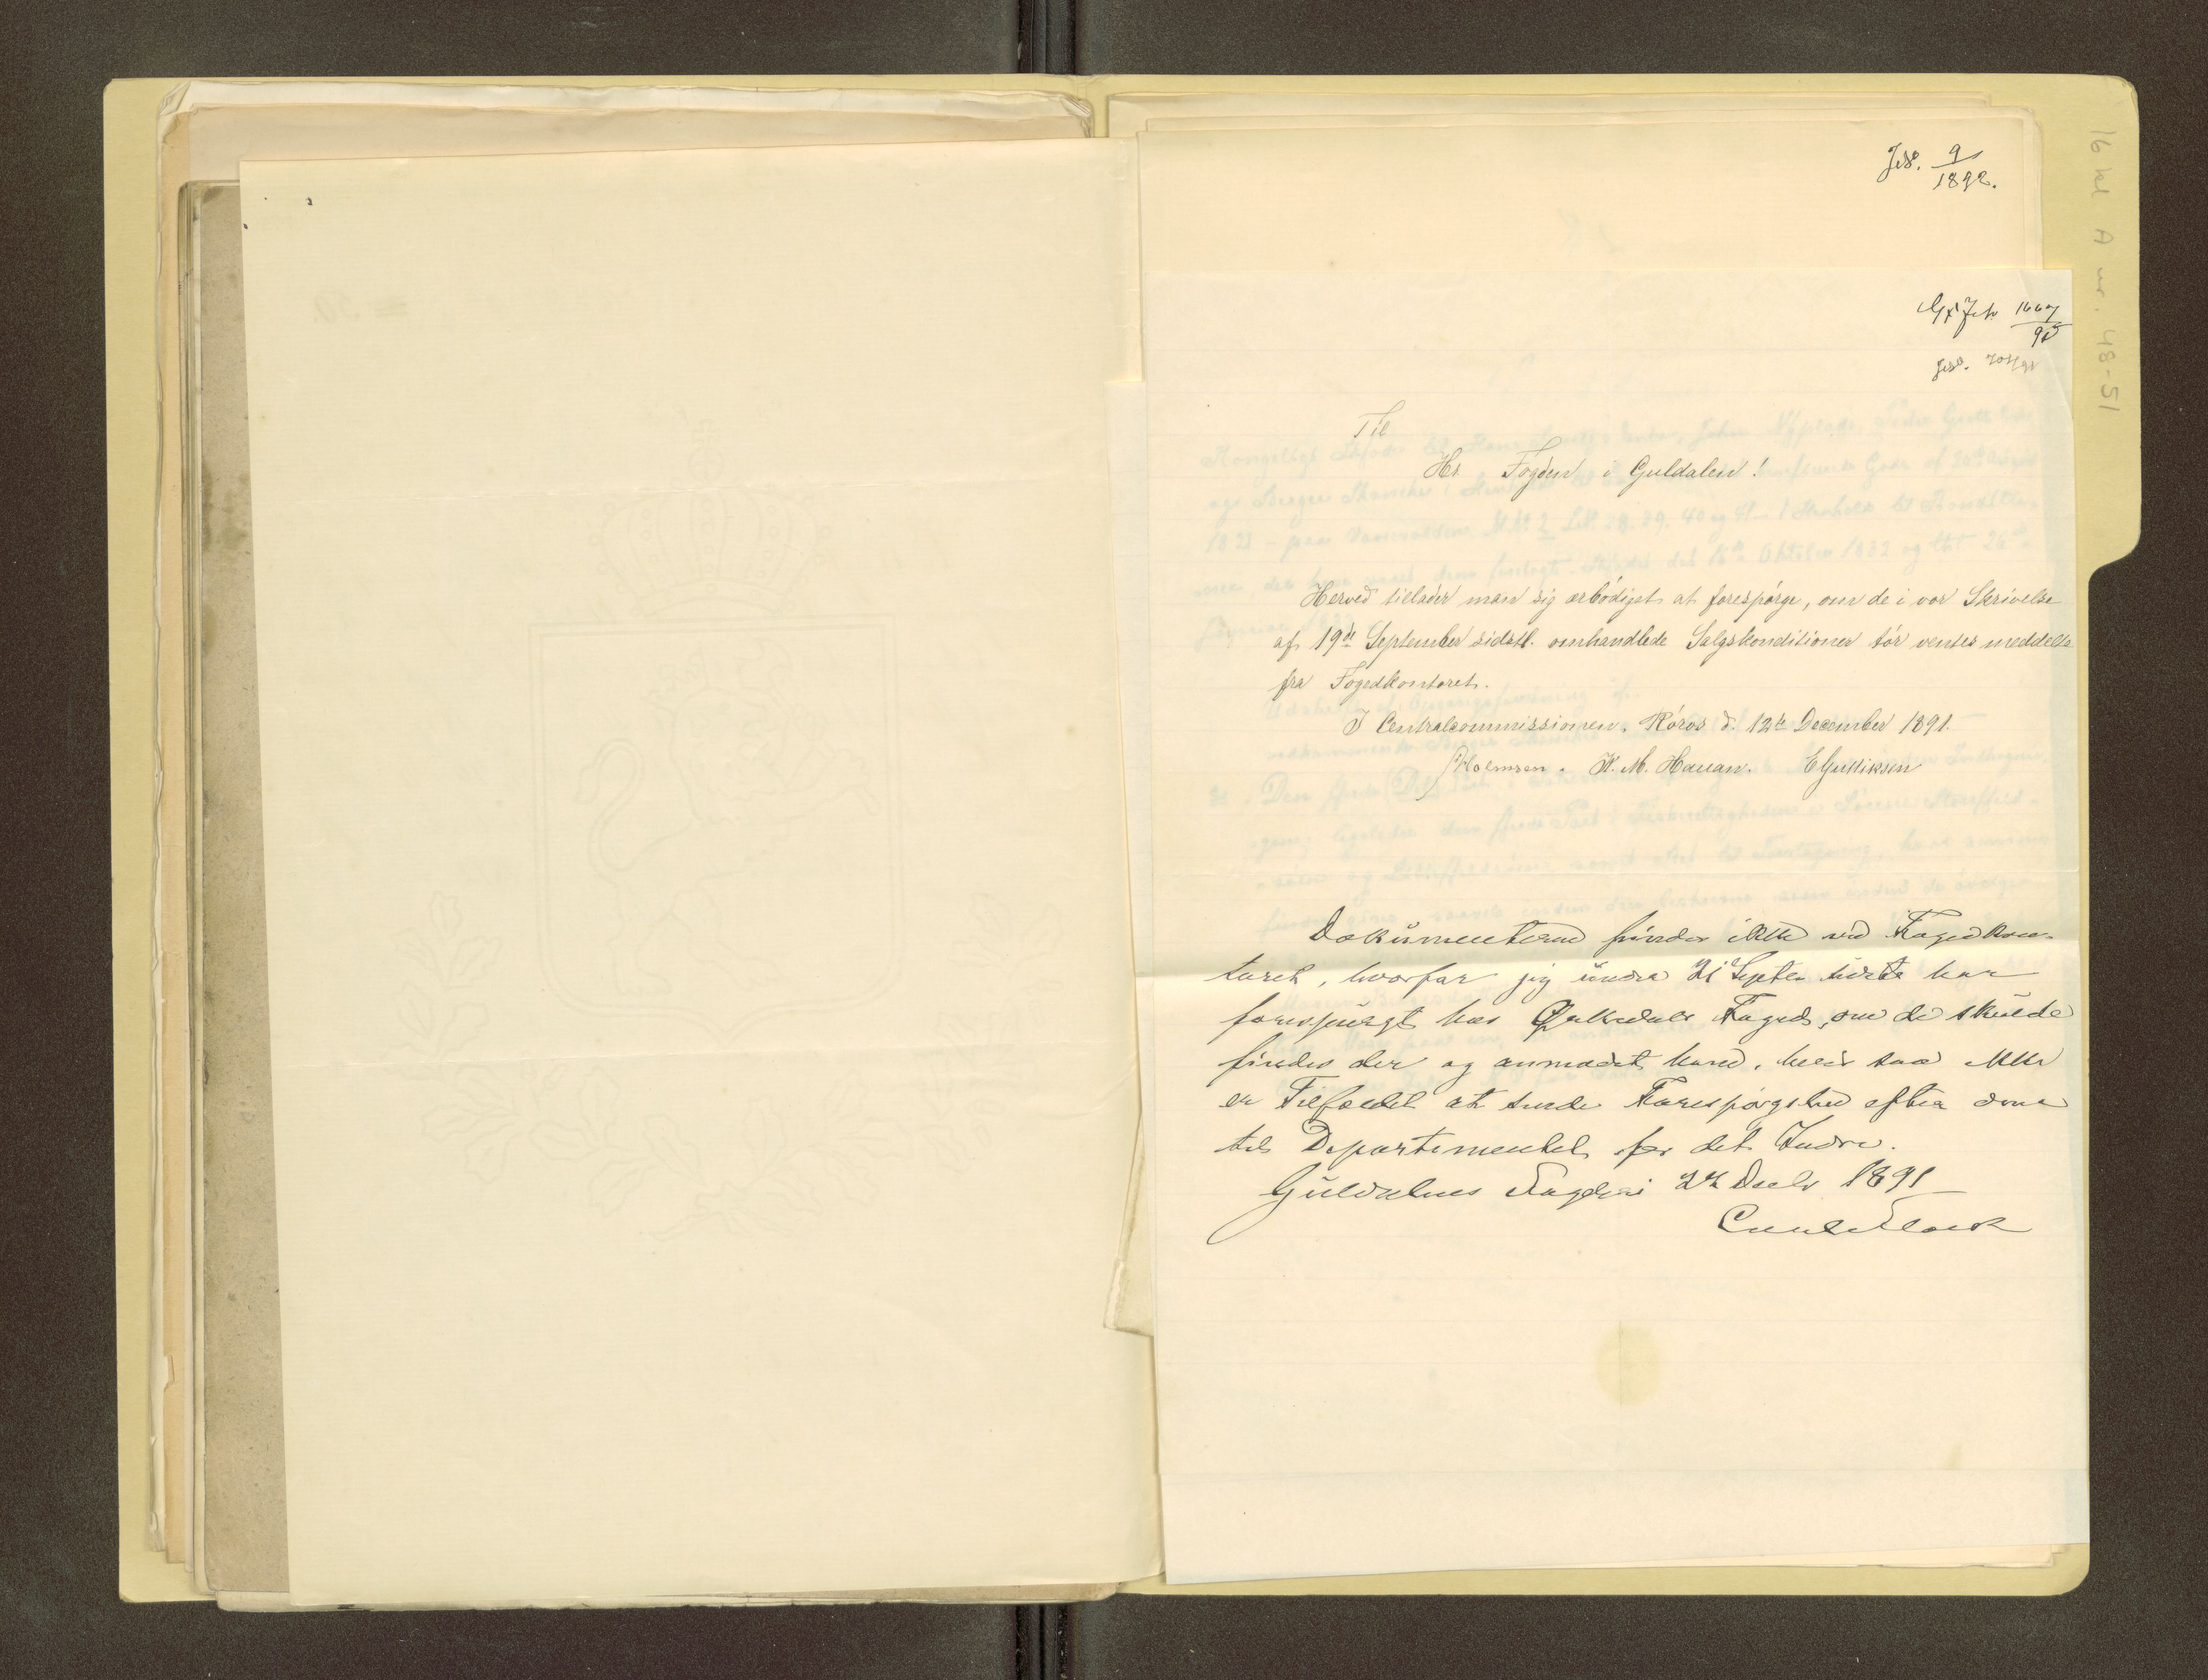 9
1892.
1667
91
Til
Hr. Fogden i Guldalen!
Herved tillader man sig ærbødigst at forespørge, om de i vor Skrivelse
af 19de September sidstl. omhandlede Salgskonditioner tør ventes meddelte
fra Fogedkontoret.
I Centralcommissionen, Røros d. 12te December 1891.
Holmsen. K. M. Hauan. E Gulliksen
Dokumenterne findes ikke ved Fogedkon-
toret, hvorfor jeg under 21 Septbr sidste har
forespurgt hos Ørkedals Foged, om de skulde
findes der og anmodet ham, hvis saa ikke
er Tilfældet at sende Forespørgslen efter dem
til Departementet for det Indre.
Guldalens Fogderi 22 Decbr 1891
16 kl A nr. 48-51